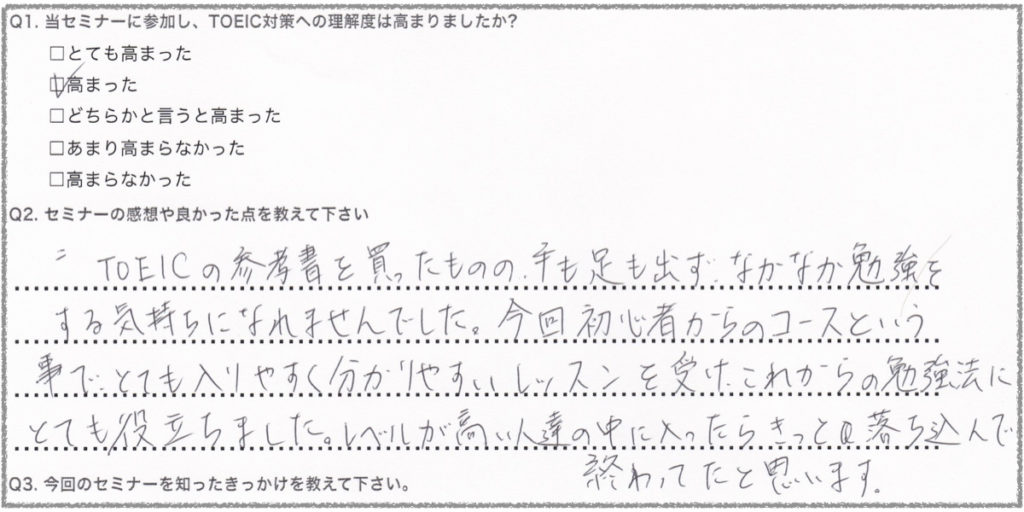 Q1. 当セミナーに参加し、TOEIC対策への理解度は高まりましたか?
□とても高まった
☑高まった
□どちらかと言うと高まった
□あまり高まらなかった
□高まらなかった
Q2. セミナーの感想や良かった点を教えて下さい
TOEICの参考書を買ったものの、手も足も出ず、なかなか勉強を
する気持ちになれませんでした。今回初心者からのコースという
事で、とても入りやすく分かりやすいレッスンを受け、これからの勉強法に
とても役立ちました。レベルが高い人達の中に入ったらきっと落ち込んで
終わってたと思います。
Q3. 今回のセミナーを知ったきっかけを教えて下さい。